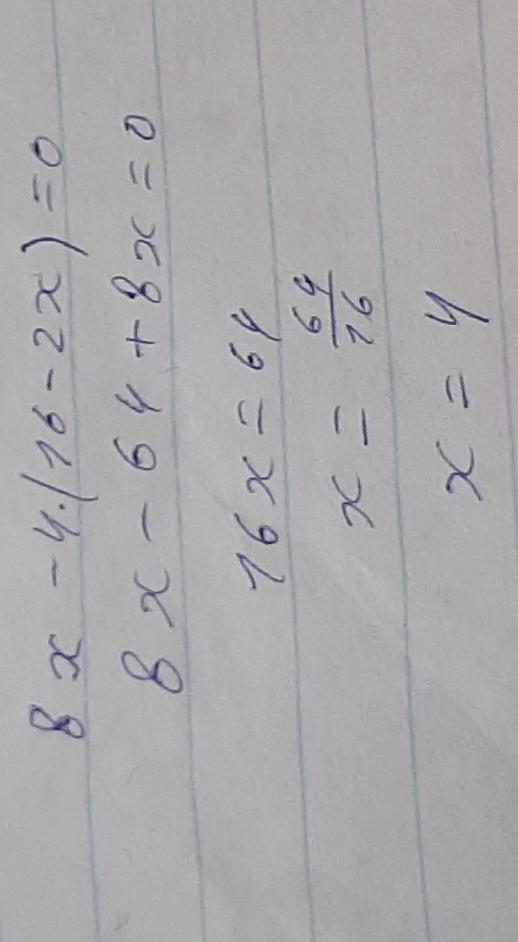 8x - 4·(16 - 2x) = 0
8x - 64 + 8x = 0
16x = 64
x = 64/16
x = 4